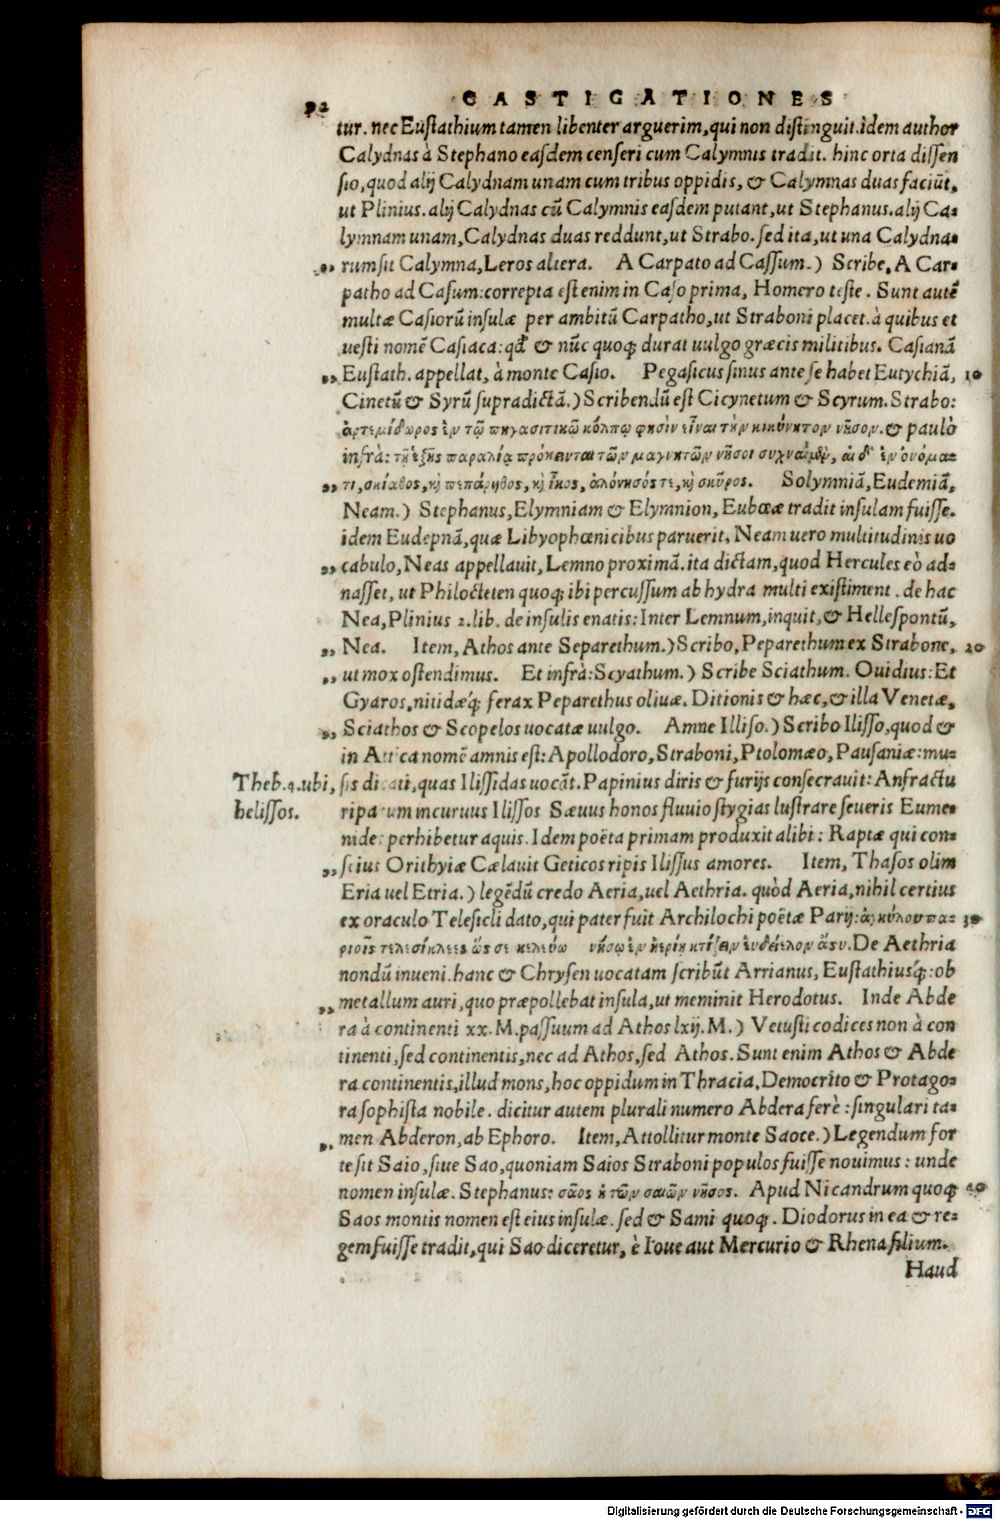 92 CASTIGATIONES
tur. nec Eustathium tamen libenter arguerim, qui non distinguit. idem author
Calydnas à Stephano easdem censeri cum Calymnis tradit. hinc orta dissen
sio, quod alij Calydnam unam cum tribus oppidis, & Calymnas duas faciũt,
ut Plinius. alij Calydnas cũ Calymnis easdem putant, ut Stephanus. alij Ca-
lymnam unam, Calydnas duas reddunt, ut Strabo. sed ita, ut una Calydna-
„ rum sit Calymna, Leros altera. A Carpato ad Cassum.) Scribe, A Car-
patho ad Casum: correpta est enim in Caso prima, Homero teste. Sunt autẽ
multæ Casiorũ insulæ per ambitũ Carpatho, ut Straboni placet. à quibus et
uesti nomẽ Casiaca: qđ & nũc quoq; durat uulgo græcis militibus. Casianã
„ Eustath. appellat, à monte Casio. Pegasicus sinus ante se habet Eutychiã, 10
Cinetũ & Syrũ supradictã.) Scribendũ est Cicynetum & Scyrum. Strabo:
ἀρτεμίδωρος ἐν τῷ πηγασιτικῶ κόλπῳ φησὶν εἶναι τὴν κικύνητον νῆσον. & paulò
infrà: τῇ ἑξῆς παραλίᾳ πρόκεινται τῶν μαγνητῶν νῆσοι συχναὶ μὲν, αἱ δ' ἐν ὀνόμα-
„ τι, σκίαθος, κỳ πεπάρηθος, κỳ ἶκος, ἁλόνησός τε, κỳ σκῦρος. Solymniã, Eudemiã,
Neam.) Stephanus, Elymniam & Elymnion, Eubœæ tradit insulam fuisse.
idem Eudepnã, quæ Libyophœnicibus paruerit. Neam uero multitudinis uo
„ cabulo, Neas appellauit, Lemno proximã. ita dictam, quod Hercules eò ad-
nasset, ut Philocteten quoq; ibi percussum ab hydra multi existiment. de hac
Nea, Plinius 2. lib. de insulis enatis: Inter Lemnum, inquit, & Hellespontũ,
„ Nea. Item, Athos ante Separethum.) Scribo, Peparethum ex Strabone, 20
„ ut mox ostendimus. Et infrà: Scyathum.) Scribe Sciathum. Ouidius: Et
Gyaros, nitidæq́; ferax Peparethus oliuæ. Ditionis & hæc, & illa Venetæ,
„ Sciathos & Scopelos uocatæ uulgo. Amne Illiso.) Scribo Ilisso, quod &
in Attica nomẽ amnis est: Apollodoro, Straboni, Ptolomæo, Pausaniæ: mu-
Theb. 4. ubi, sis dicati, quas Ilissidas uocãt. Papinius diris & furijs consecrauit: Anfractu
helissos. riparum incuruus Ilissos Sæuus honos fluuio stygias lustrare seueris Eume-
nide: perhibetur aquis. Idem poëta primam produxit alibi: Raptæ qui con-
„ scius Orithyiæ Cælauit Geticos ripis Ilissus amores. Item, Thasos olim
Eria uel Etria.) legẽdũ credo Aeria, uel Aethria. quòd Aeria, nihil certius
ex oraculo Telesicli dato, qui pater fuit Archilochi poëtæ Parij: ἀγκύλου πα- 30
ριοῖς τελεσίκλεες ὥς σε κελεύω νήσῳ ἐν ἠερίῃ κτίζειν εὐδείελον ἄστυ. De Aethria
nondũ inueni. hanc & Chrysen uocatam scribũt Arrianus, Eustathiusq́;: ob
„ metallum auri, quo præpollebat insula, ut meminit Herodotus. Inde Abde
ra à continenti xx. M. passuum ad Athos lxij. M.) Vetusti codices non à con
tinenti, sed continentis, nec ad Athos, sed Athos. Sunt enim Athos & Abde
ra continentis, illud mons, hoc oppidum in Thracia, Democrito & Protago-
ra sophista nobile. dicitur autem plurali numero Abdera ferè: singulari ta-
„ men Abderon, ab Ephoro. Item, Attollitur monte Saoce.) Legendum for
te sit Saio, siue Sao, quoniam Saios Straboni populos fuisse nouimus: unde
nomen insulæ. Stephanus: σάος ἡ τῶν σαιῶν νῆσος. Apud Nicandrum quoq; 40
Saos montis nomen est eius insulæ. sed & Sami quoq;. Diodorus in ea & re-
gem fuisse tradit, qui Sao diceretur, è Ioue aut Mercurio & Rhena filium.
Haud
Digitalisierung gefördert durch die Deutsche Forschungsgemeinschaft - DFG